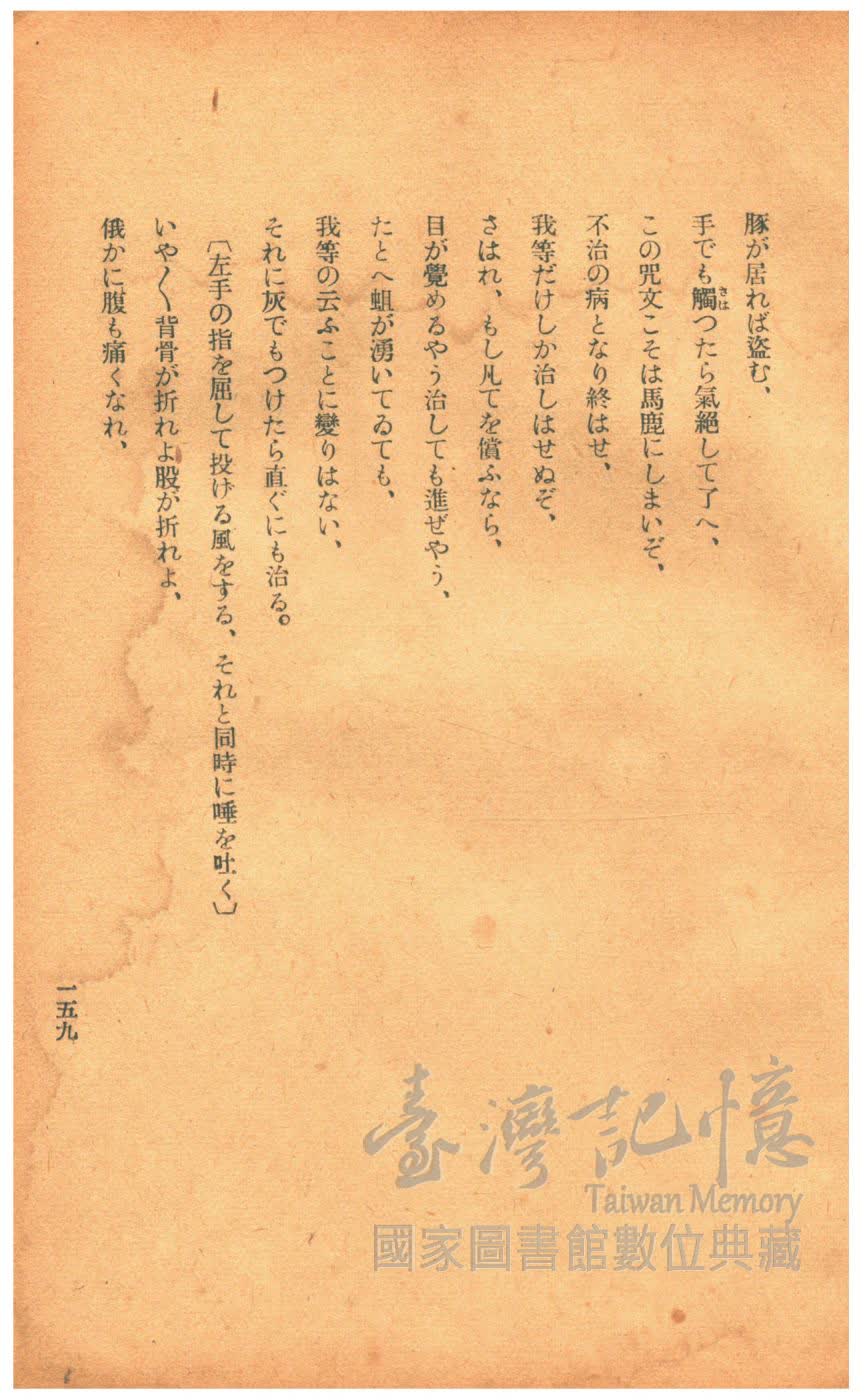 豚が居れば盜む、
手でも觸つたら氣絕して了へ、
さは
この咒文こそは馬鹿にしまいぞ、
不治の病となり終はせ、
我等だけしか治しはせぬぞ、
さはれ、もし凡てを償ふなら、
目が覺めるやう治しても進ぜやう、
たとへ蛆が湧いてゐても、
我等の云ふことに變りはない、
それに灰でもつけたら直ぐにも治る。
〔左手の指を屈して投げる風をする、それと同時に唾を吐く〕
いや〳〵背骨が折れよ股が折れよ、
俄かに腹も痛くなれ、
一五九
臺灣記憶
Taiwan Memory
國家圖書館數位典藏